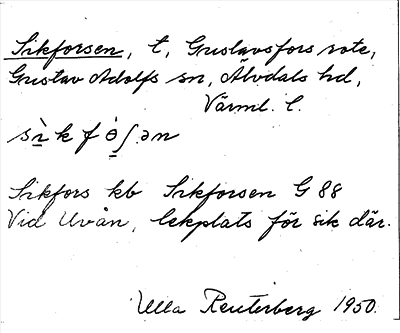 Sikforsen, t, Gustavsfors rote,
Gustav Adolfs sn, Älvdals hd,
Värml. l.
sìkfòʃən
Sikfors kb Sikforsen G 88
Vid Uvån, lekplats för sik där.
Ulla Reuterberg 1950.